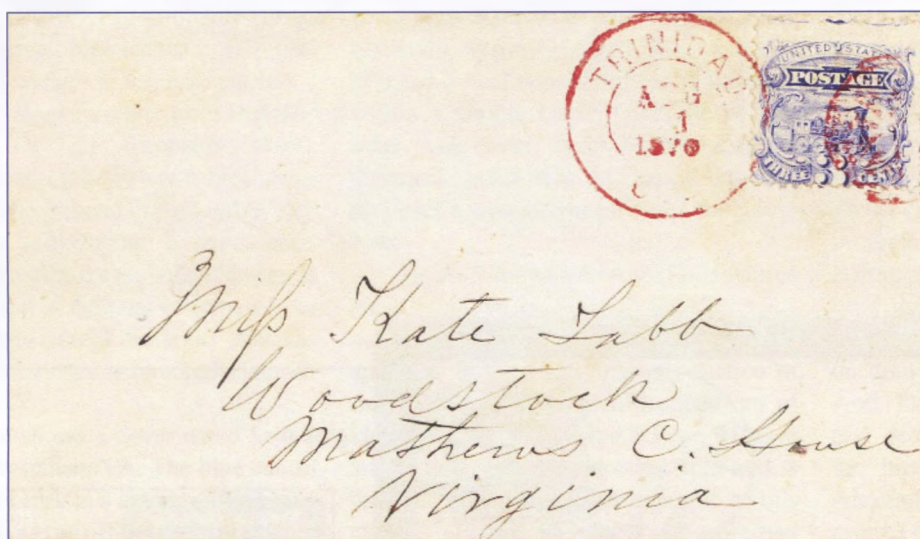 TRINIDAD
AUG
1
1870
UNITED STATES
POSTAGE
THREE 3 CENTS
Miss Kate Tabb
Woodstock
Mathews C. House
Virginia